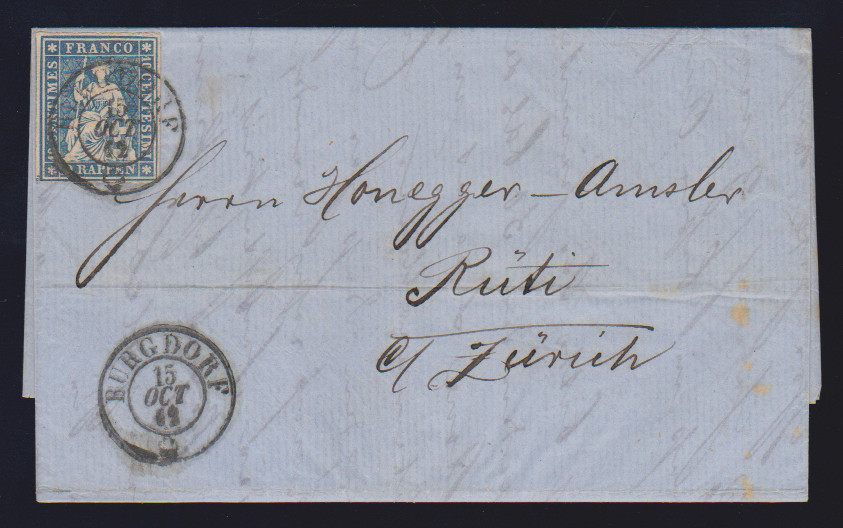 FRANCO
10 CENTIMES
10 CENTESIMI
RAPPEN
15
OCT
62
Herrn Honegger - Amsler
Rüti
c/ Zürich
BURGDORF
15
OCT
62